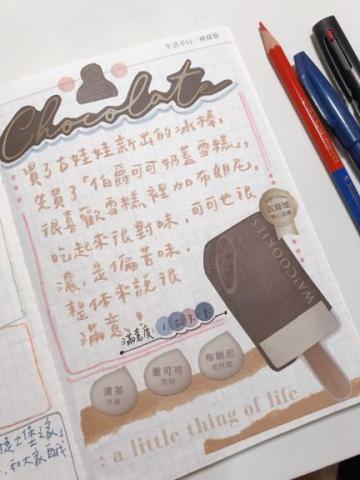 生活不只一種樣貌
Chocolate
買了古娃娃新出的冰棒,
先買了「伯爵可可奶蓋雪糕」,
很喜歡雪糕裡加布朗尼,
吃起來很對味,可可也很
濃,是偏苦味,
整体來說很
滿意!
滿意度:1 2 3
WAICOOKIES
濃茶
重可可
布朗尼
: a little thing of life